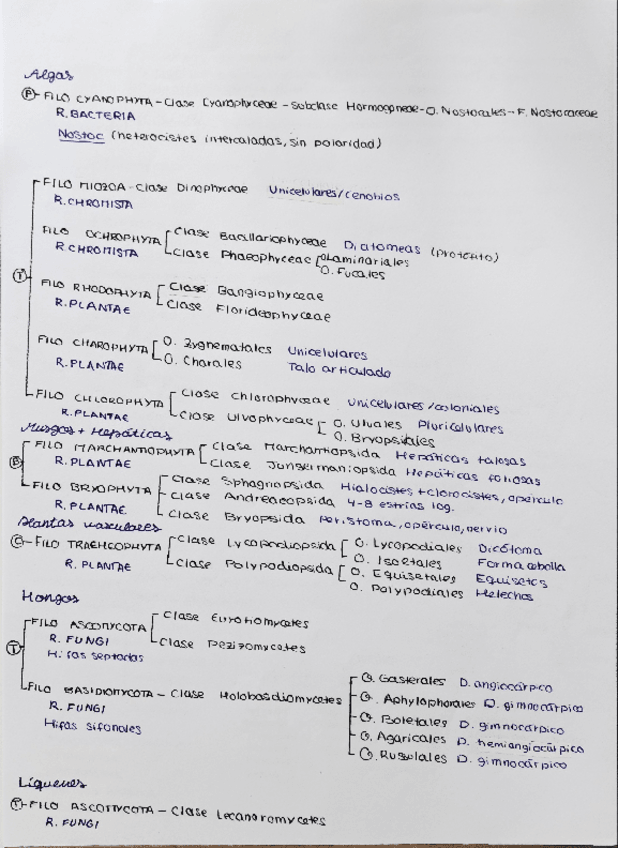 Algas
Ⓟ-FILO CYANOPHYTA - Clase Cyanophyceae - Subclase Hormogoneae - O. Nostocales - F. Nostocaceae
R. BACTERIA
Nostoc (heterocistes intercaladas, sin polaridad)
FILO MIOZOA - Clase Dinophyceae Unicelulares/cenobios
R. CHROMISTA
FILO OCHROPHYTA Clase Bacillariophyceae Diatomeas (protecto)
R. CHROMISTA Clase Phaeophyceae O. Laminariales
O. Fucales
Ⓣ
FILO RHODOPHYTA Clase Bangiophyceae
R. PLANTAE Clase Florideophyceae
FILO CHAROPHYTA O. Zygnematales Unicelulares
R. PLANTAE O. Charales Talo articulado
FILO CHLOROPHYTA Clase Chlorophyceae Unicelulares/coloniales
R. PLANTAE Clase Ulvophyceae O. Ulvales Pluricelulares
O. Bryopsidales
Musgos + Hepáticas
FILO MARCHANTIOPHYTA Clase Marchantiopsida Hepáticas talosas
R. PLANTAE Clase Jungermaniopsida Hepáticas foliosas
Ⓑ
FILO BRYOPHYTA Clase Sphagnopsida Hialocistes + clorocistes, opérculo
Clase Andreaeopsida 4-8 estrías log.
R. PLANTAE Clase Bryopsida Peristoma, opérculo, nervio
Plantas vasculares
Ⓒ-FILO TRAEHEOPHYTA Clase Lycopodiopsida O. Lycopodiales Dicótoma
O. Isoetales Forma cebolla
R. PLANTAE Clase Polypodiopsida O. Equisetales Equisetos
O. Polypodiales Helechos
Hongos
FILO ASCOMYCOTA Clase Eurotiomycetes
R. FUNGI Clase Pezizomycetes
Hifas septadas
Ⓣ
FILO BASIDIOMYCOTA - Clase Holobasidiomycetes O. Gasterales D. angiocárpico
R. FUNGI O. Aphylophorales D. gimnocárpico
Hifas sifonales O. Boletales D. gimnocárpico
O. Agaricales D. hemiangiocárpico
O. Russulales D. gimnocárpico
Líquenes
Ⓣ-FILO ASCOMYCOTA - Clase Lecanoromycetes
R. FUNGI